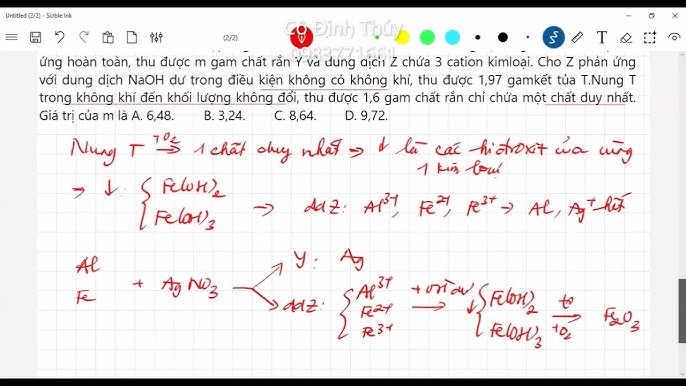 Untitled (2/2) - Scrble Ink
(2/2)
Cô Đinh Thúy
0983771661
ứng hoàn toàn, thu được m gam chất rắn Y và dung dịch Z chứa 3 cation kimloại. Cho Z phản ứng
với dung dịch NaOH dư trong điều kiện không có không khí, thu được 1,97 gamkết tủa T.Nung T
trong không khí đến khối lượng không đổi, thu được 1,6 gam chất rắn chỉ chứa một chất duy nhất.
Giá trị của m là A. 6,48. B. 3,24. C. 8,64. D. 9,72.
Nung T +O2→ 1 chất duy nhất ⇒ ↓ là các hiđroxit của cùng
1 kim loại
⇒ ↓: { Fe(OH)2
Fe(OH)3
→ ddZ: Al3+, Fe2+, Fe3+ → Al, Ag+ hết
Al
Fe
+ AgNO3
Y: Ag
ddZ: { Al3+
Fe2+
Fe3+
→ ↓ { Fe(OH)2
Fe(OH)3
to
+O2
→ Fe2O3